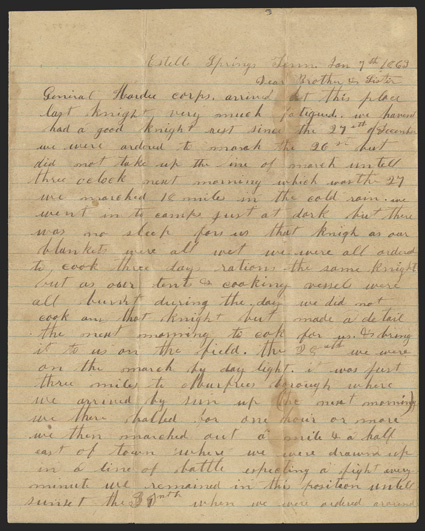 3
Estell Springs Tenn. Jan 7th 1863
Dear Brother & Sister
General Hardee corps. arrived at this place
last knight very much fatigued. we havent
had a good knight rest since the 27th of December
we were ordered to march the 26th but
did not take up the line of march untell
three oclock next morning which was the 27
we marched 16 miles in the cold rain. we
went in to camps just at dark but there
was no sleep for us that knigh as our
blankets were all wet we were all orderd
to cook three days rations the same knight
but as our tents & cooking vessel were
all burnt during the day we did not
cook any that knight but made a detail
the next morning to cook for us & bring
it to us on the field. the 28th we were
on the march by day light. it was just
three miles to Murfrees brough where
we arrived by sun up the next morning
we then halted for one hour or more
we then marched out a mile & a half
east of town where we were drawn up
in a line of battle expecting a fight every
minut we remained in this position untell
sunset the when we were ordered around